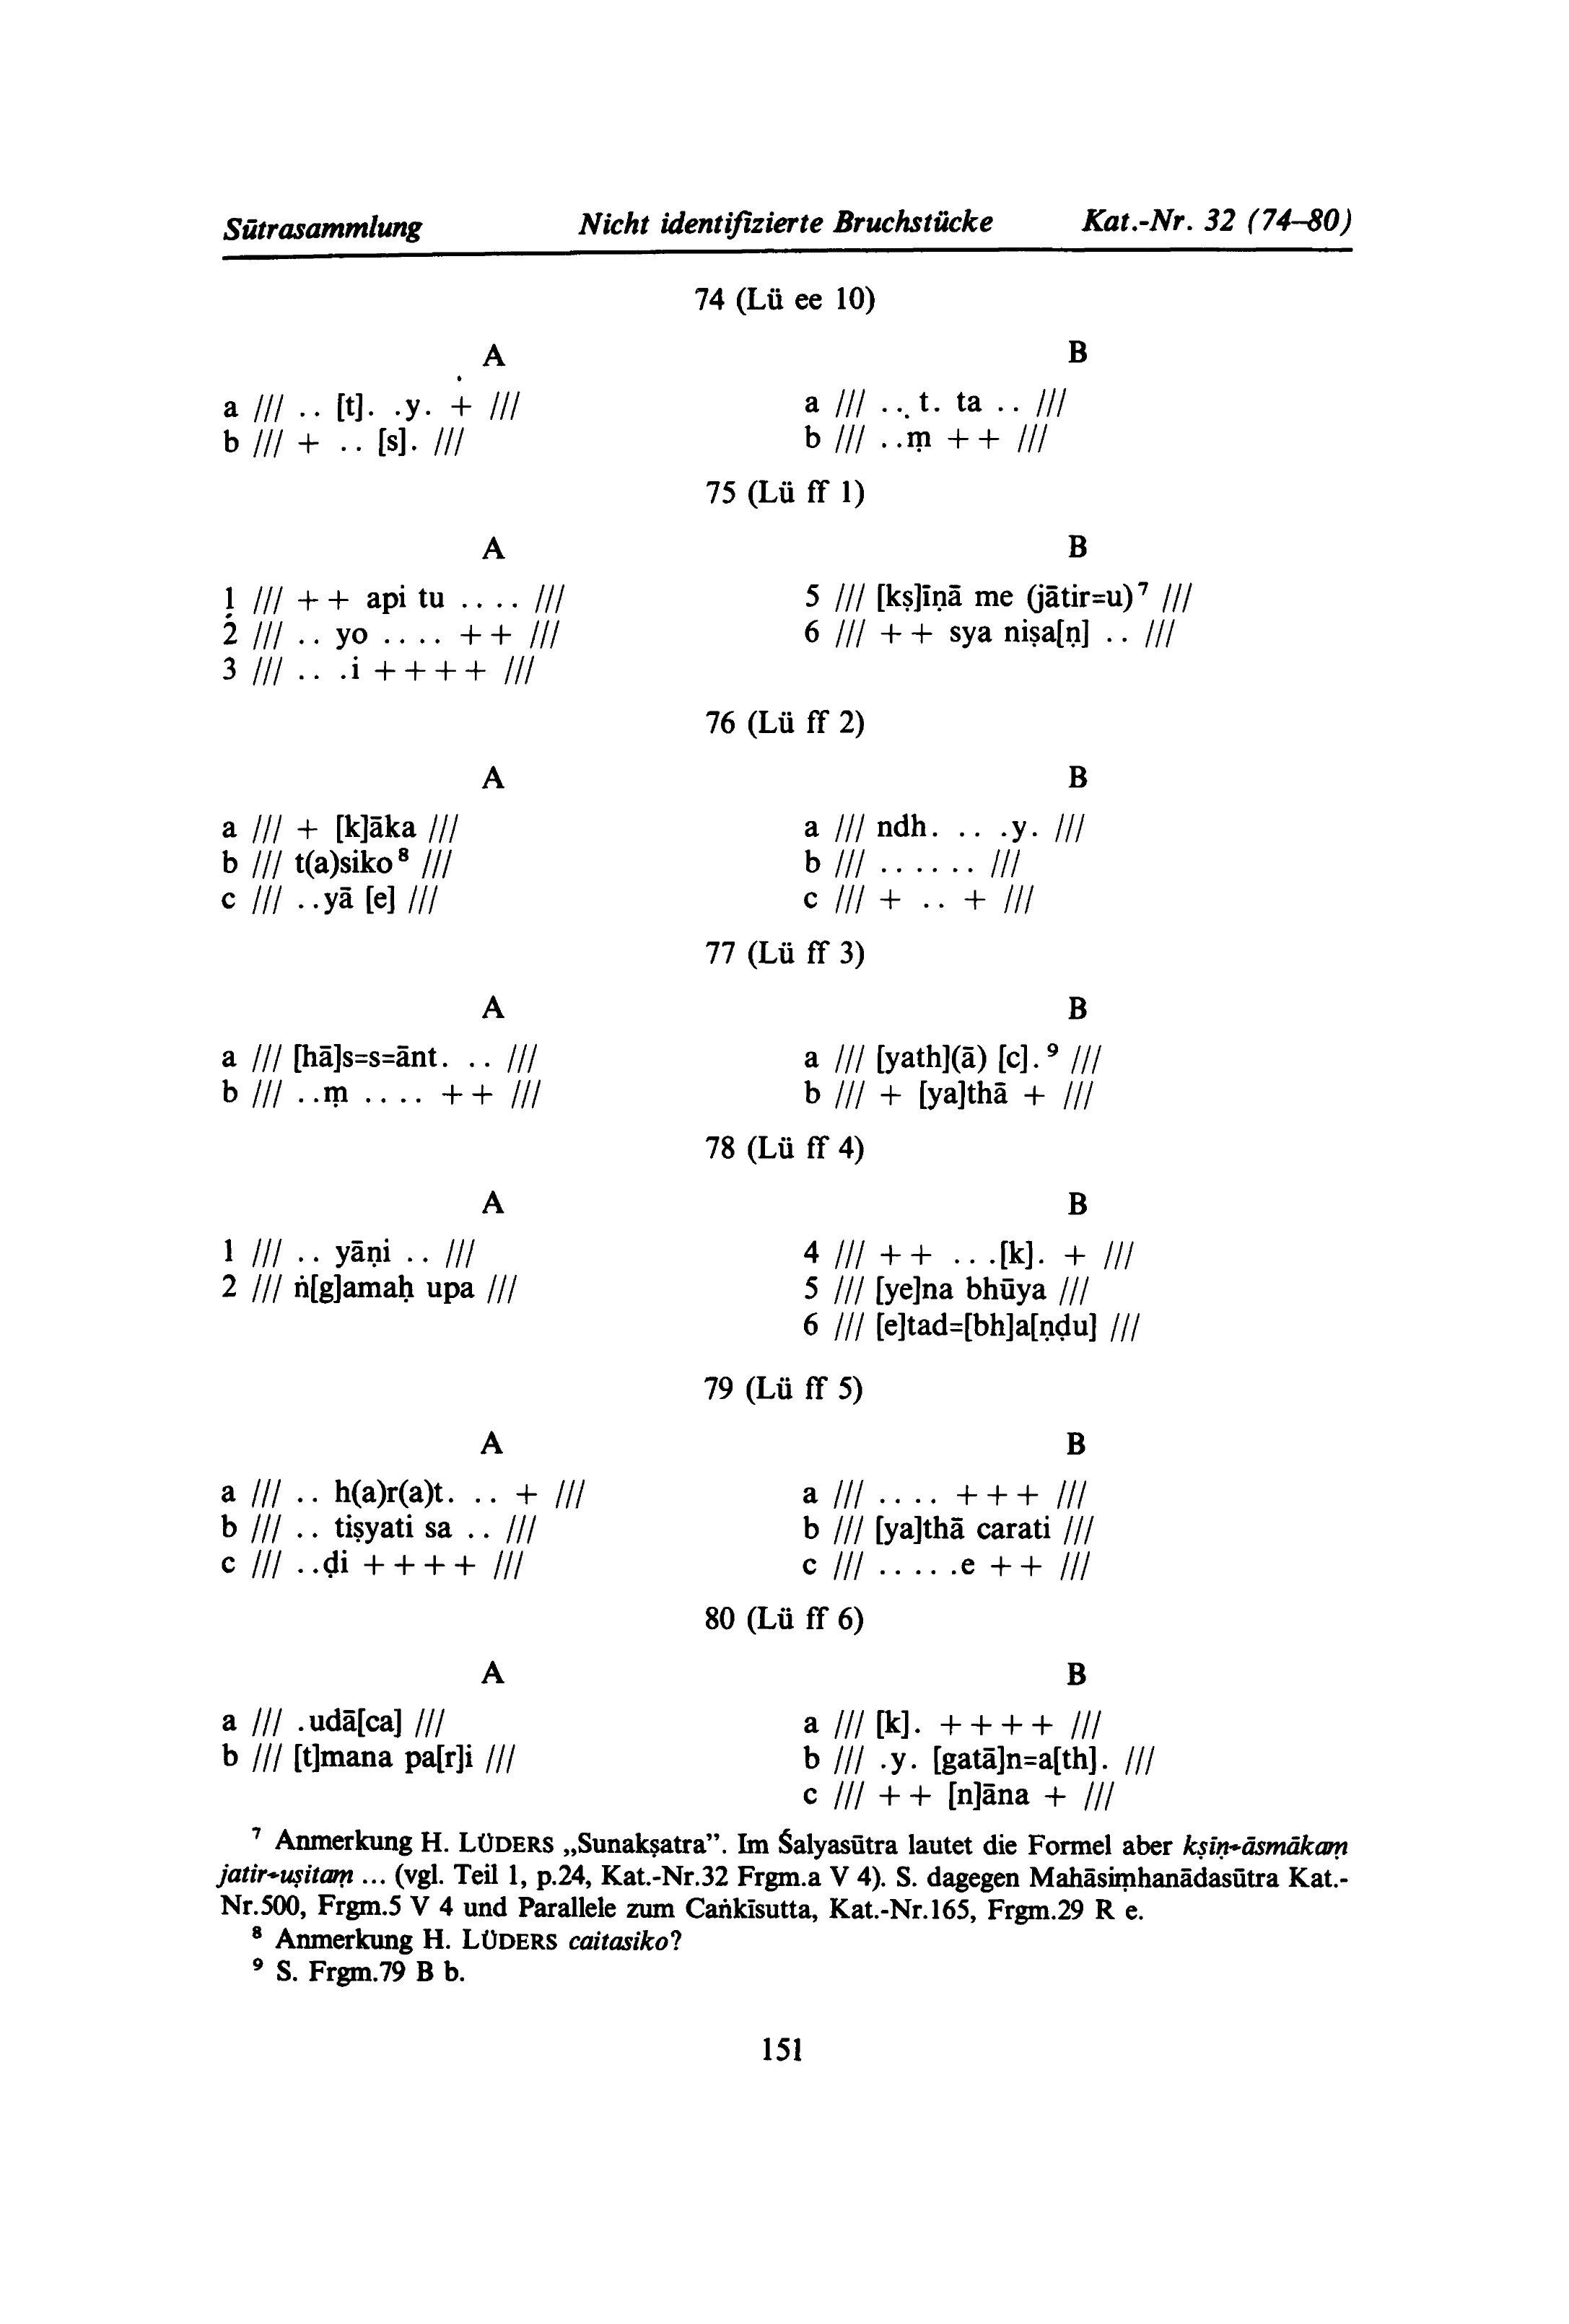 Sūtrasammlung Nicht identifizierte Bruchstücke Kat.-Nr. 32 (74–80)
74 (Lü ee 10)
A B
a /// .. [t]. .y. + /// a /// .. t. ta .. ///
b /// + .. [s]. /// b /// ..ṃ + + ///
75 (Lü ff 1)
A B
1 /// + + api tu .... /// 5 /// [kṣ]īṇā me (jātir=u)⁷ ///
2 /// .. yo .... + + /// 6 /// + + sya niṣa[ṇ] .. ///
3 /// .. .i + + + + ///
76 (Lü ff 2)
A B
a /// + [k]āka /// a /// ndh. .. .y. ///
b /// t(a)siko⁸ /// b /// ...... ///
c /// ..yā [e] /// c /// + .. + ///
77 (Lü ff 3)
A B
a /// [hā]s=s=ānt. .. /// a /// [yath](ā) [c].⁹ ///
b /// ..ṃ .... + + /// b /// + [ya]thā + ///
78 (Lü ff 4)
A B
1 /// .. yāṇi .. /// 4 /// + + ...[k]. + ///
2 /// ṅ[g]amaḥ upa /// 5 /// [ye]na bhūya ///
6 /// [e]tad=[bh]a[ṇḍu] ///
79 (Lü ff 5)
A B
a /// .. h(a)r(a)t. .. + /// a /// .... + + + ///
b /// .. tiṣyati sa .. /// b /// [ya]thā carati ///
c /// ..ḍi + + + + /// c /// .....e + + ///
80 (Lü ff 6)
A B
a /// .udā[ca] /// a /// [k]. + + + + ///
b /// [t]mana pa[r]i /// b /// .y. [gatā]n=a[th]. ///
c /// + + [n]āna + ///
⁷ Anmerkung H. LÜDERS „Sunakṣatra”. Im Śalyasūtra lautet die Formel aber kṣiṇ-āsmākaṃ
jatir-uṣitaṃ ... (vgl. Teil 1, p.24, Kat.-Nr.32 Frgm.a V 4). S. dagegen Mahāsiṃhanādasūtra Kat.-
Nr.500, Frgm.5 V 4 und Parallele zum Caṅkīsutta, Kat.-Nr.165, Frgm.29 R e.
⁸ Anmerkung H. LÜDERS caitasiko?
⁹ S. Frgm.79 B b.
151